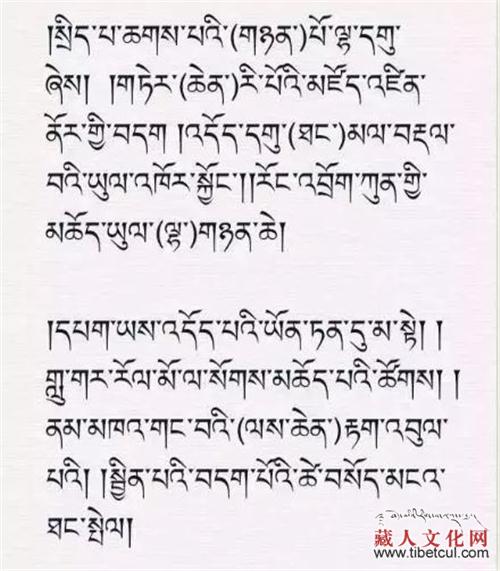 །སྲིད་པ་ཆགས་པའི་(གཉན་)པོ་ལྷ་དགུ་
ཞེས། །གཏེར་(ཆེན་)རི་པོའི་མཛོད་འཛིན་
ནོར་གྱི་བདག །འདོད་དགུ་(ཐང་)མལ་བརྡལ་
བའི་ཡུལ་འཁོར་སྐྱོང་།།རོང་འབྲོག་ཀུན་གྱི་
མཆོད་ཡུལ་(ལྷ་)གཉན་ཆེ།
།དཔག་ཡས་འདོད་པའི་ཡོན་ཏན་དུ་མ་སྟེ། །
གླུ་གར་རོལ་མོ་ལ་སོགས་མཆོད་པའི་ཚོགས། །
ནམ་མཁའ་གང་བའི་(ལས་ཆེན་)རྟག་འབུལ་
པའི། །སྦྱིན་པའི་བདག་པོའི་ཚེ་བསོད་མངའ་
ཐང་སྤེལ།
藏人文化网
www.tibetcul.com